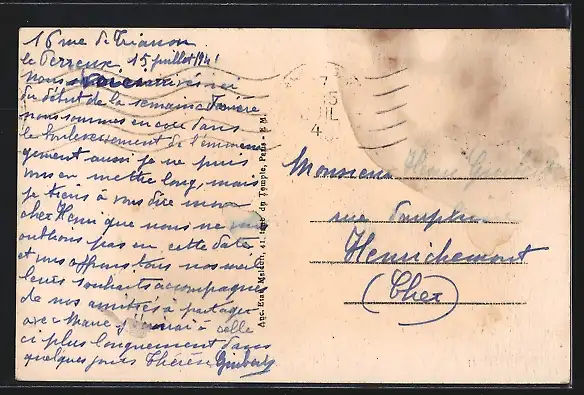 16 rue de Trianon
le Perreux 15 juillet 1941
Nous
du début de la semaine dernière
nous sommes encore dans
le bouleversement de l'emména-
gement aussi je ne puis
vous en mettre long, mais
je tiens à vous dire mon
cher Henri que nous ne vous
oublions pas en cette date
et vous offrons tous nos meil
leurs souhaits accompagnés
de nos amitiés à partager
avec Marie j'écrirai à celle
ci plus longuement dans
quelques jours Thérèse
Anc. Etab. Malcuit, 41, Faubg du Temple, Paris
JUIL
Monsieur Henri
rue Dauphine
Henrichemont
(Cher)